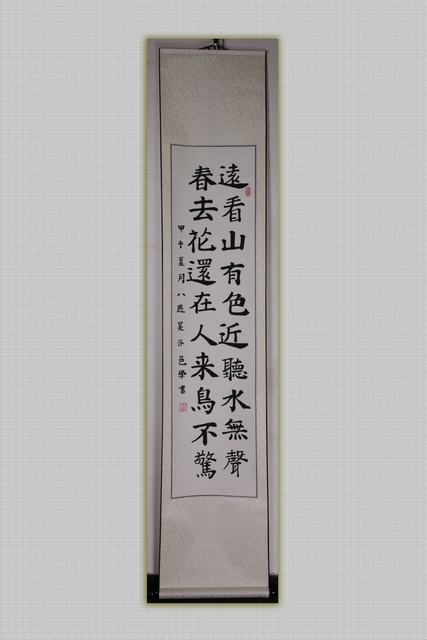 遠看山有色近聽水無聲
春去花還在人来鳥不驚
甲午夏月八